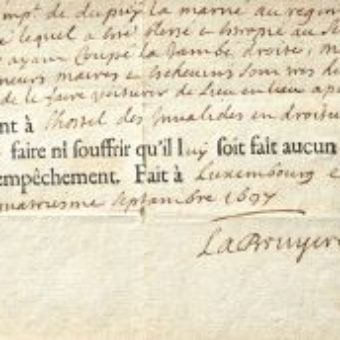 mp.ᵉ de dupuy la marne au regim
é lequel a esté blessé et estropié au s
ayant coupé la jambe droite,
neurs maires et Eschevins sont
de le faire voiturer de lieu en lieu a
nt à l'hostel des Invalides en droitu
faire ni souffrir qu'il luy soit fait aucun
empêchement. Fait à Luxembourg
septembre 1697
LaBruyer